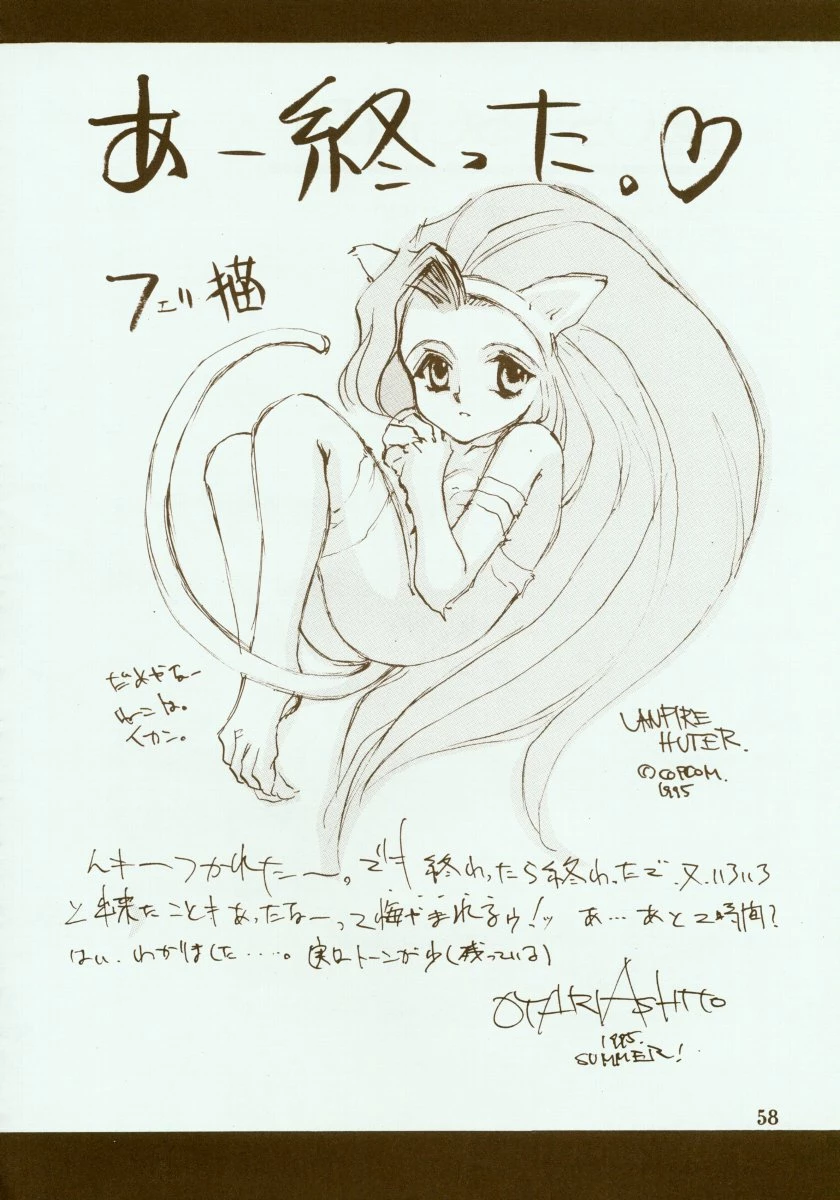 あー終った。♡
フェリ猫
だめやなー
ねこは。
イカン。
VANPIRE
HUTER.
©CAPCOM.
1995
んもーつかれたー。でも終わったら終わったで、又いろいろ
と出来たこともあったなーって悔やまれるゥ!ッ あ…あと2時間?
はい、わかりました……。実はトーンが少し(残っている)
OTARI ASHITO
1995.
SUMMER!
58